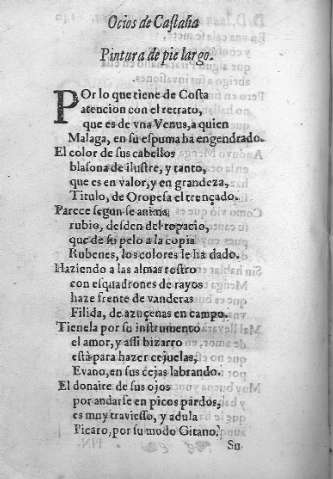 Ocios de Castalia
Pintura de pie largo.
POr lo que tiene de Costa
atencion con el retrato,
que es de vna Venus, a quien
Malaga, en su espuma ha engendrado.
El color de sus cabellos
blasona de ilustre, y tanto,
que es en valor, y en grandeza,
Titulo, de Oropesa el trençado.
Parece segun se anima
rubio, desden del topacio,
que de su pelo a la copia
Rubenes, los colores le ha dado.
Haziendo a las almas rostro
con esquadrones de rayos
haze frente de vanderas
Filida, de azuçenas en campo.
Tienela por su instrumento
el amor, y assi bizarro
està para hazer cejuelas,
Evano, en sus cejas labrando.
El donaire de sus ojos
por andarse en picos pardos,
es muy traviesso, y adula
Picaro, por su modo Gitano.
Su